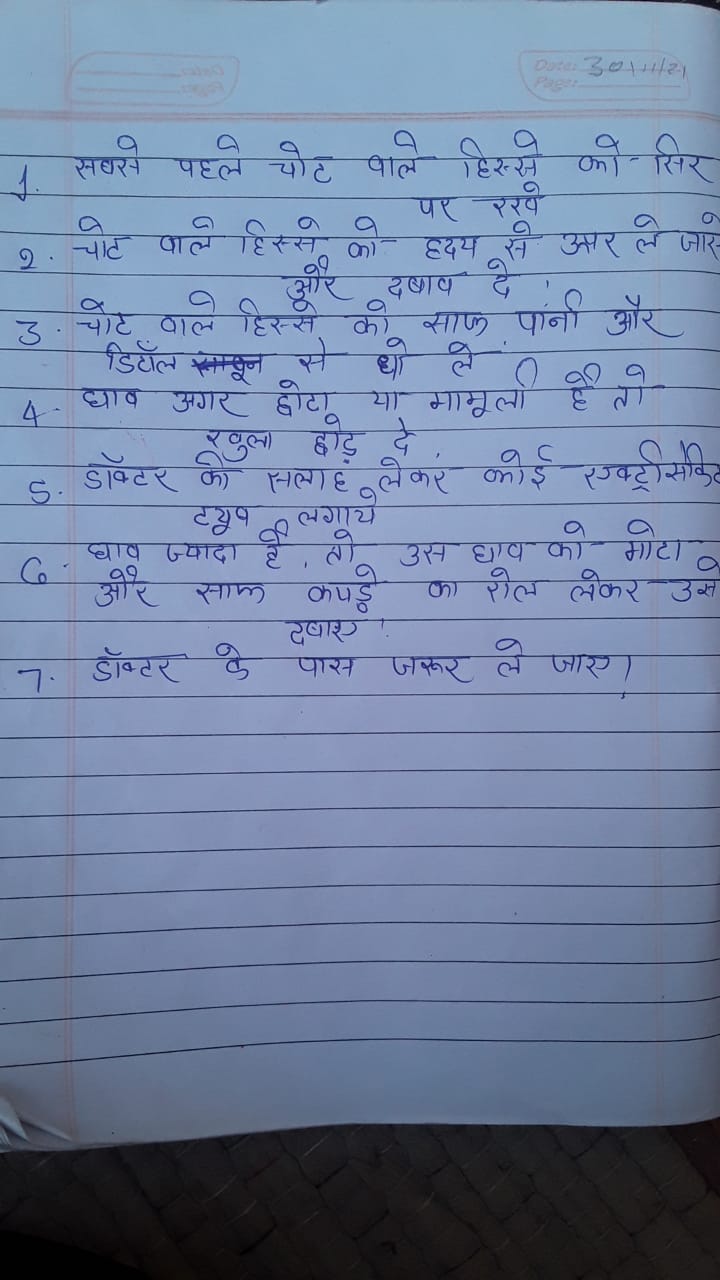 Date: 30/11/21
Page:
1. सबसे पहले चोट वाले हिस्से को सिर
पर रखे
2. चोट वाले हिस्से को हृदय से ऊपर ले जाए
और दबाव दे।
3. चोट वाले हिस्से को साफ पानी और
डिटॉल साबून से धो ले।
4. घाव अगर छोटा या मामूली है तो
खुला छोड़ दे,
5. डॉक्टर की सलाह लेकर कोई
ट्यूब लगाये
6. घाव ज्यादा है, तो उस घाव को मोटा
और साफ कपड़े का रोल लेकर उसे
दबाए।
7. डॉक्टर के पास जरूर ले जाए।